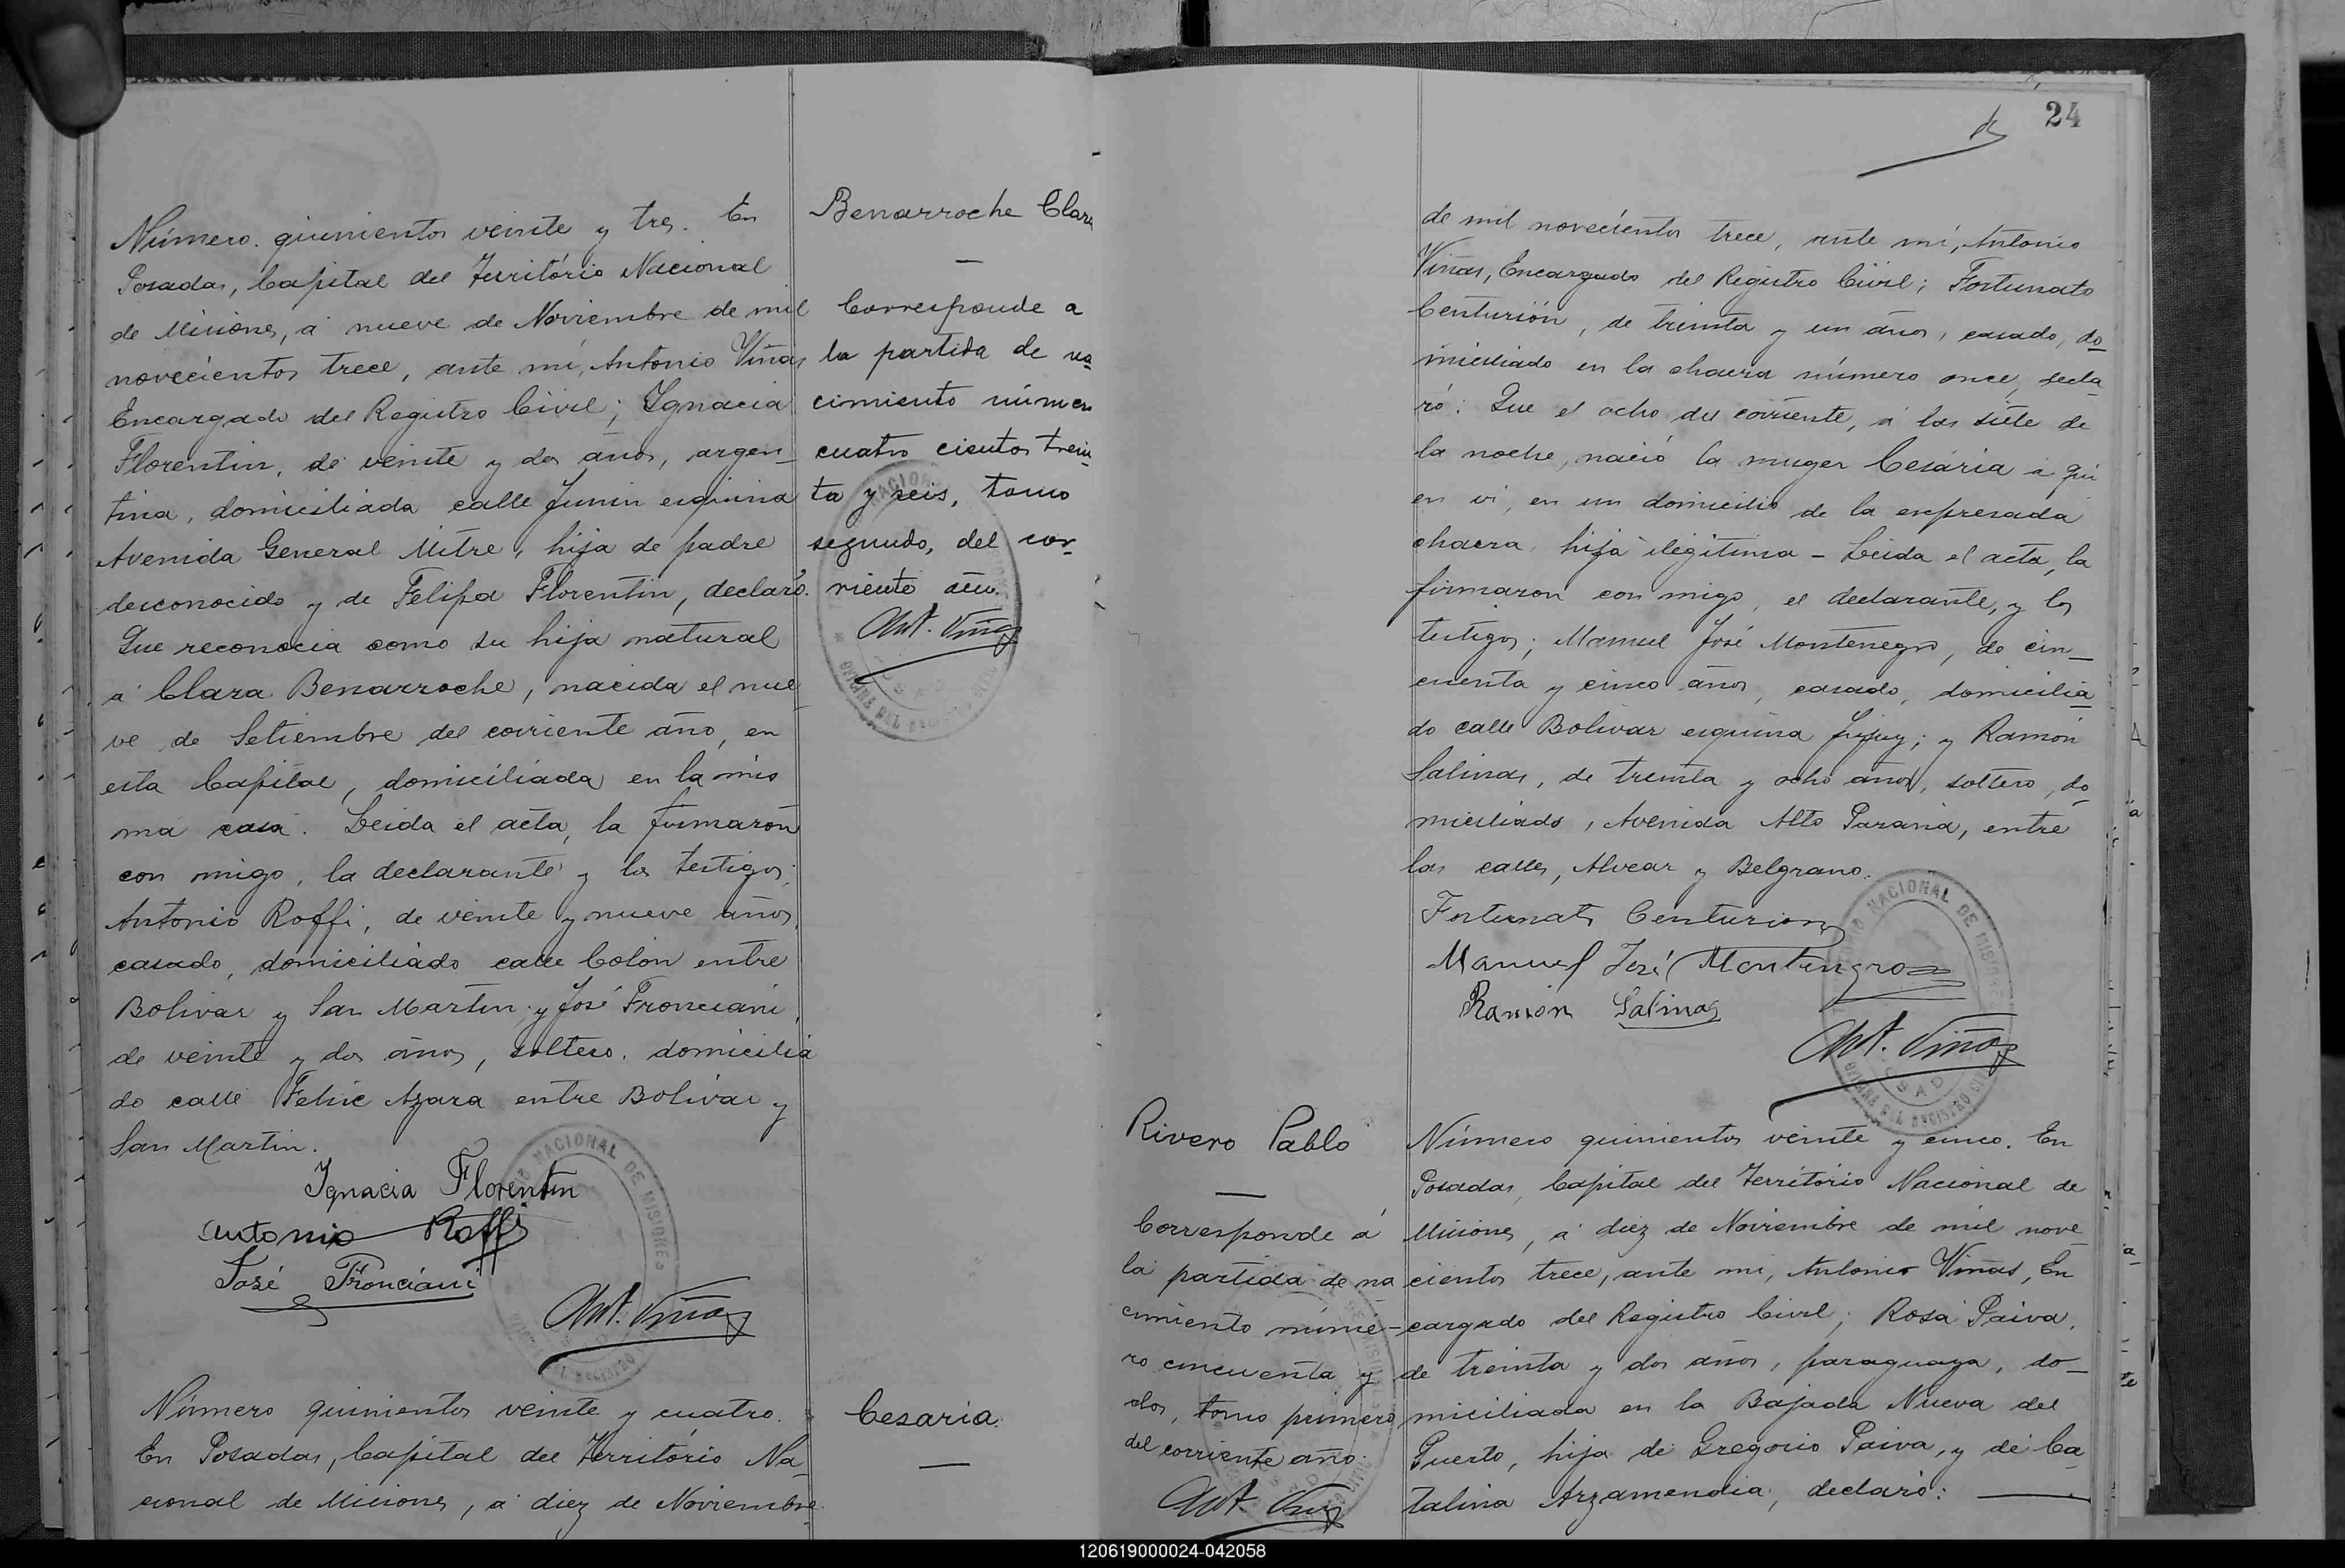 Número quinientos veinte y tres. En
Posadas, Capital del Território Nacional
de Misiones, á nueve de Noviembre de mil
novecientos trece, ante mí, Antonio Viñas
Encargado del Registro Civil; Ygnacia
Florentin, de veinte y dos años, argen-
tina, domiciliada calle Junin esquina
Avenida General Mitre, hija de padre
desconocido y de Felipa Florentin, declaró.
Que reconocia como su hija natural
á Clara Benarroche, nacida el nue
ve de Setiembre del corriente año, en
esta Capital, domiciliada en la mis
ma casa. Leida el acta, la firmaron
con migo, la declarante y los testigos;
Antonio Roffi, de veinte y nueve años,
casado, domiciliado calle Colón entre
Bolivar y San Martin; y José Fronciani,
de veinte y dos años, soltero, domicilia
do calle Felix Azara entre Bolivar y
San Martin.
Ygnacia Florentin
Antonio Roffi
José Fronciani
Ant. Viñas
Número quinientos veinte y cuatro.
En Posadas, Capital del Território Na-
cional de Misiones, á diez de Noviembre
Benarroche Clara
Corresponde a
la partida de na
cimiento número
cuatro cientos trein
ta y seis, tomo
segundo, del cor-
riente año.
Ant. Viñas
Cesaria.
24
de mil novecientos trece, ante mí, Antonio
Viñas, Encargado del Registro Civil; Fortunato
Centurión, de treinta y un años, casado, do
miciliado en la chacra número once, decla
ró: Que el ocho del corriente, á las siete de
la noche, nació la muger Cesária á qui
en vi, en un domicilio de la expresada
chacra, hija ilegitima - Leida el acta, la
firmaron con migo, el declarante, y los
testigos; Manuel José Montenegro, de cin-
cuenta y cinco años, casado, domicilia
do calle Bolivar esquina Jujuy; y Ramón
Salinas, de treinta y ocho años, soltero, do
miciliado, Avenida Alto Paraná, entre
las calles, Alvear y Belgrano.
Fortunato Centurion
Manuel José Montenegro
Ramón Salinas
Ant. Viñas
Rivero Pablo
Corresponde á
la partida de na
cimiento núme-
ro cincuenta y
dos, tomo primero,
del corriente año.
Ant. Viñas
Número quinientos veinte y cinco. En
Posadas, Capital del Território Nacional de
Misiones, á diez de Noviembre de mil nove
cientos trece, ante mi, Antonio Viñas, En
cargado del Registro Civil; Rosa Paiva,
de treinta y dos años, paraguaya, do-
miciliada en la Bajada Nueva del
Puerto, hija de Gregorio Paiva, y de Ca
talina Arzamendia, declaró:
120619000024-042058